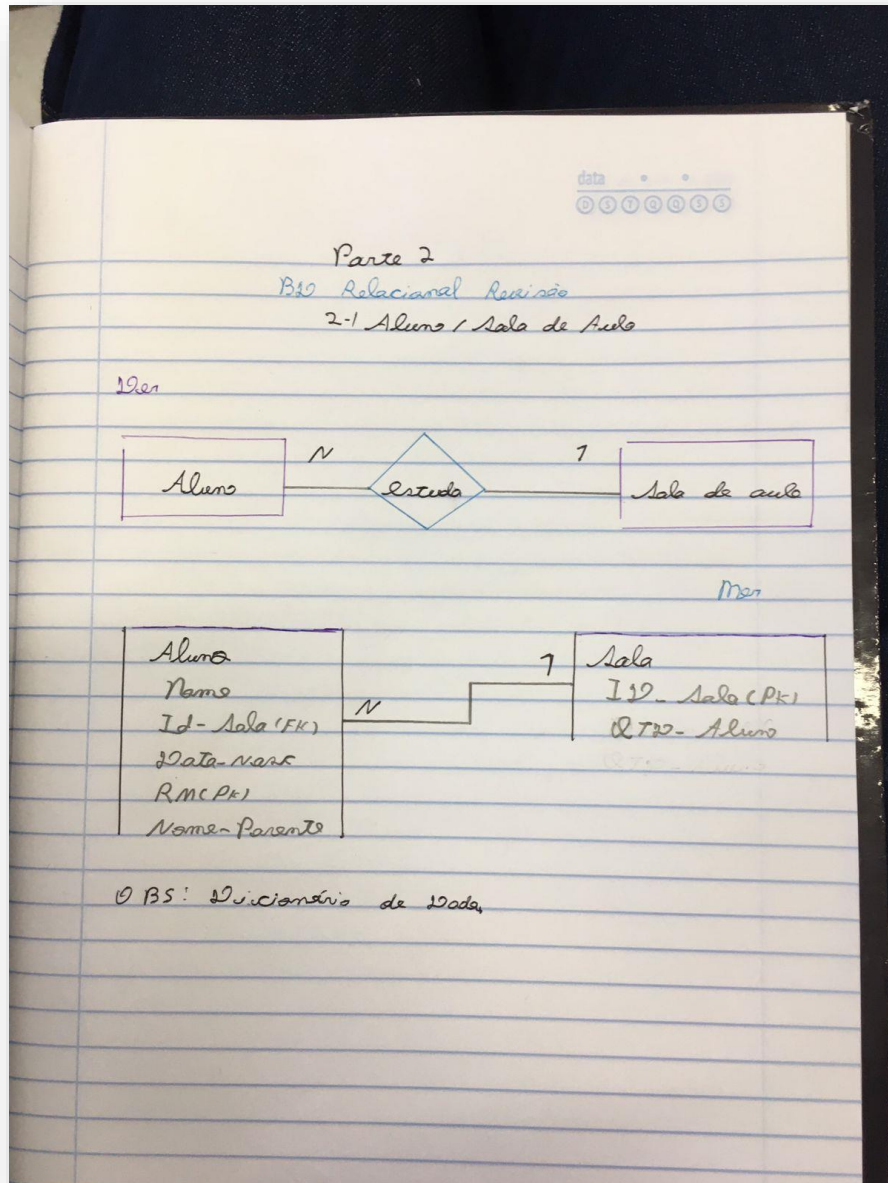 data
D S T Q Q S S
Parte 2
BD Relacional Revisão
2-1 Aluno / Sala de Aula
Der
N
1
Aluno
estuda
Sala de aula
Mer
Aluno
Nome
Id-Sala (FK)
Data-Nasc
RM(PK)
Nome-Parente
N
1
Sala
ID-Sala (PK)
QTD-Aluno
OBS: Dicionário de Dado,